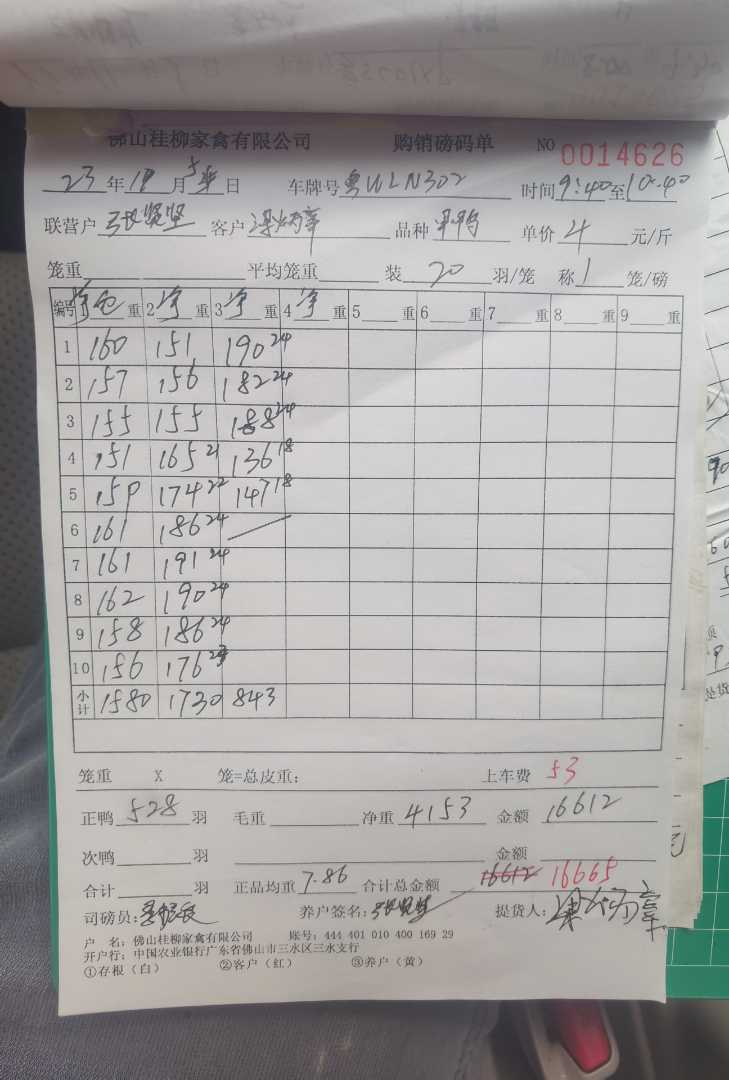 佛山桂柳家禽有限公司 购销磅码单 NO 0014626
23 年 月 日 车牌号 粤WLN302 时间 9:40 至 10:40
联营户 张贤坚 客户 品种 单价 4 元/斤
笼重 平均笼重 装 20 羽/笼 称 1 笼/磅
编号 重 2 净 重 3 净 重 4 净 重 5 重 6 重 7 重 8 重 9 重
1 160 151 190 24
2 157 156 182 24
3 155 155 188 24
4 151 165 21 136 18
5 159 174 22 147 18
6 161 186 24
7 161 191 24
8 162 190 24
9 158 186 24
10 156 176
小计 1580 1730 843
笼重 X 笼=总皮重: 上车费 53
正鸭 528 羽 毛重 净重 4153 金额 16612
次鸭 羽 金额
合计 羽 正品均重 7.86 合计总金额 16612 16665
司磅员: 养户签名: 张贤坚 提货人:
户 名: 佛山桂柳家禽有限公司 账号: 444 401 010 400 169 29
开户行: 中国农业银行广东省佛山市三水区三水支行
①存根(白) ②客户(红) ③养户(黄)